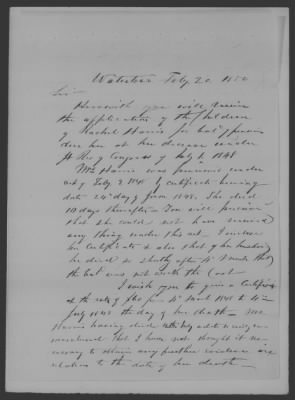 Waterloo Feby. 20 1850
Sir
Herewith you will receive
the application of the children
of Rachel Harris for bal of pension
due her at her decease under
the Act of Congress of July 1848
Mrs Harris was pensioned under
act of Feby 2 1848 by certificate bearing
date 24 day of June 1848. She died
10 days thereafter. You will perceive
that she could not have received
any thing under this act. I enclose
her Certificate & also that of her husband
he died so shortly after 4 March that
the bal was not worth the Cost
I wish you to give a Certificate
at the rate of for 4 March 1848 to 4
July 1848 the day of her death - Mrs
Harris having died
that I have not thought it ne-
cessary to obtain any further evidence in
relation to the date of her death